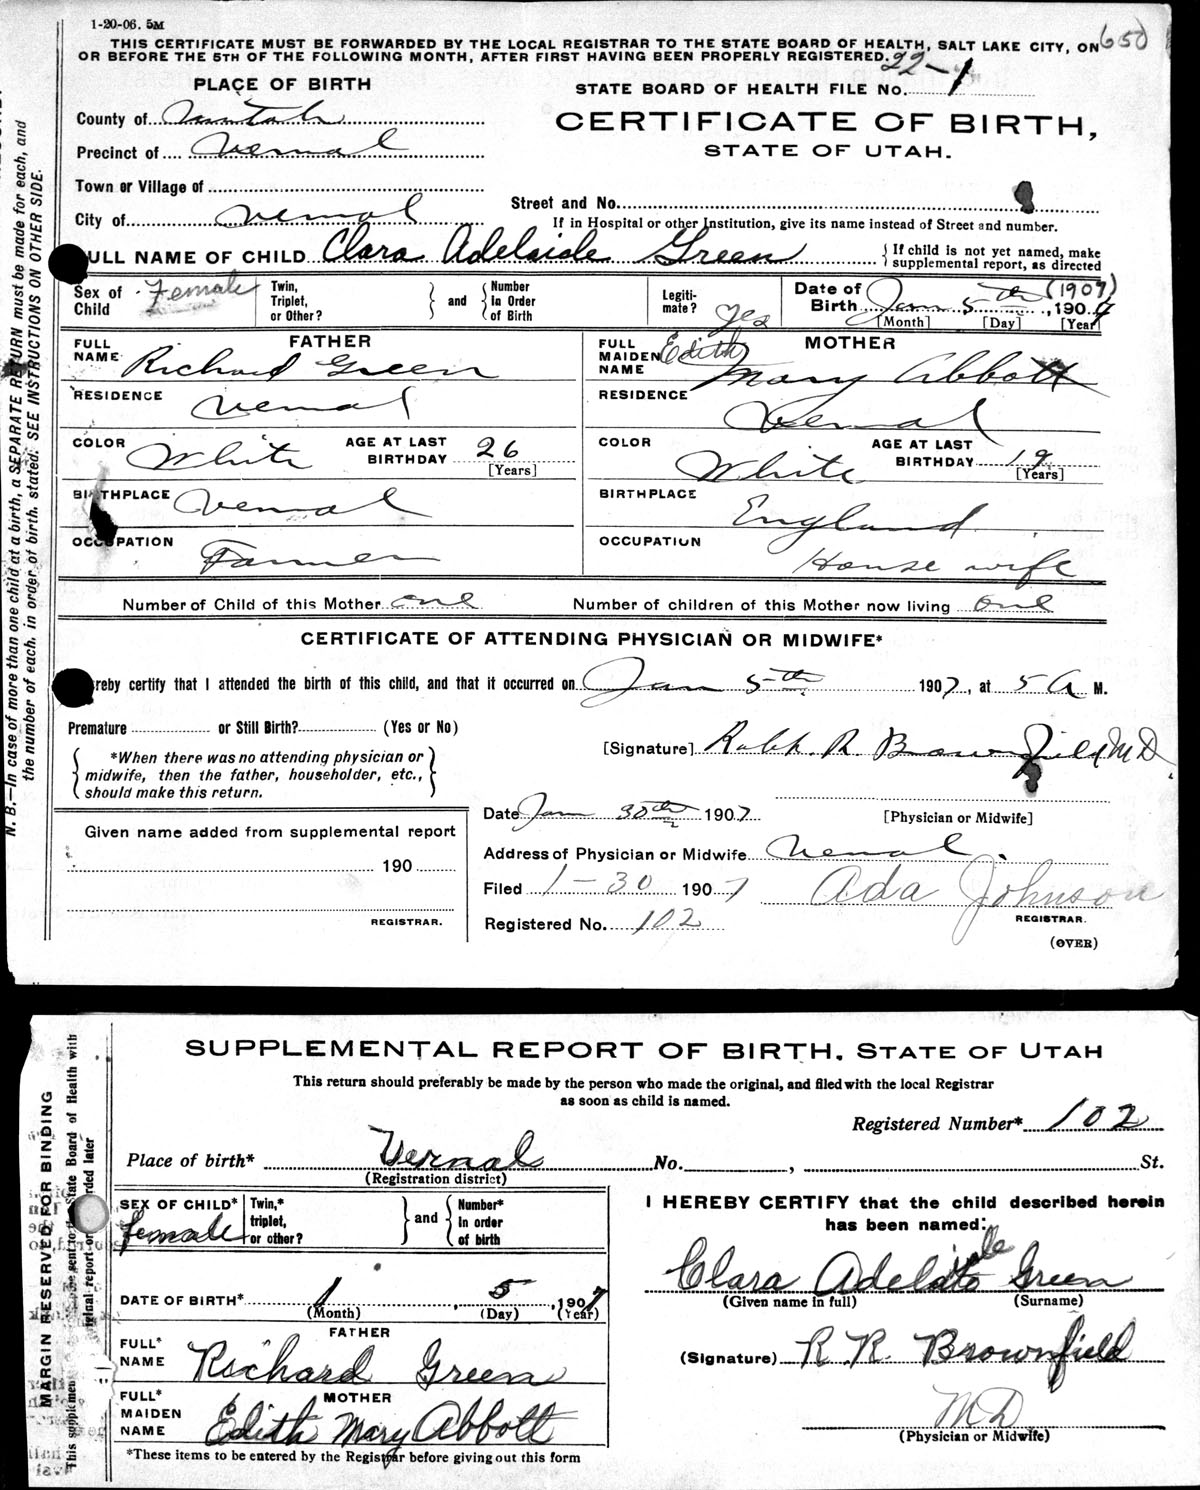 1-20-06. 5M
650
THIS CERTIFICATE MUST BE FORWARDED BY THE LOCAL REGISTRAR TO THE STATE BOARD OF HEALTH, SALT LAKE CITY, ON
OR BEFORE THE 5TH OF THE FOLLOWING MONTH, AFTER FIRST HAVING BEEN PROPERLY REGISTERED.
PLACE OF BIRTH
STATE BOARD OF HEALTH FILE No. 22-1
County of Uintah
CERTIFICATE OF BIRTH,
STATE OF UTAH.
Precinct of Vernal
Town or Village of
Street and No.
City of Vernal
If in Hospital or other Institution, give its name instead of Street and number.
ULL NAME OF CHILD Clara Adelaide Green { If child is not yet named, make
supplemental report, as directed
Sex of Child Female
Twin, Triplet, or Other? } and { Number In Order of Birth
Legitimate? Yes
Date of Birth Jan 5th (1907) , 1907
[Month] [Day] [Year]
FATHER
FULL NAME Richard Green
MOTHER
FULL MAIDEN NAME Edith Mary Abbott
RESIDENCE Vernal
RESIDENCE Vernal
COLOR White AGE AT LAST BIRTHDAY 26 [Years]
COLOR White AGE AT LAST BIRTHDAY 19 [Years]
BIRTHPLACE Vernal
BIRTHPLACE England
OCCUPATION Farmer
OCCUPATION House wife
Number of Child of this Mother one
Number of children of this Mother now living one
CERTIFICATE OF ATTENDING PHYSICIAN OR MIDWIFE*
reby certify that I attended the birth of this child, and that it occurred on Jan 5th 1907, at 5 A M.
Premature or Still Birth? (Yes or No)
{ *When there was no attending physician or
midwife, then the father, householder, etc.,
should make this return. }
[Signature] Ralph R Brownfield MD
[Physician or Midwife]
Date Jan 30th 1907
Given name added from supplemental report
190
REGISTRAR.
Address of Physician or Midwife Vernal.
Filed 1-30 1907 Ada Johnson
REGISTRAR.
Registered No. 102
(OVER)
N. B.—In case of more than one child at a birth, a SEPARATE RETURN must be made for each, and
the number of each, in order of birth, stated. SEE INSTRUCTIONS ON OTHER SIDE.
SUPPLEMENTAL REPORT OF BIRTH, STATE OF UTAH
This return should preferably be made by the person who made the original, and filed with the local Registrar
as soon as child is named.
Registered Number* 102
Place of birth* Vernal No. , St.
(Registration district)
SEX OF CHILD* female
Twin,* triplet, or other? } and { Number* in order of birth
DATE OF BIRTH* 1 , 5 , 1907
(Month) (Day) (Year)
FATHER
FULL* NAME Richard Green
MOTHER
FULL* MAIDEN NAME Edith Mary Abbott
*These items to be entered by the Registrar before giving out this form
I HEREBY CERTIFY that the child described herein
has been named:
Clara Adelaide Green
(Given name in full) (Surname)
(Signature) R R Brownfield
MD
(Physician or Midwife)
MARGIN RESERVED FOR BINDING